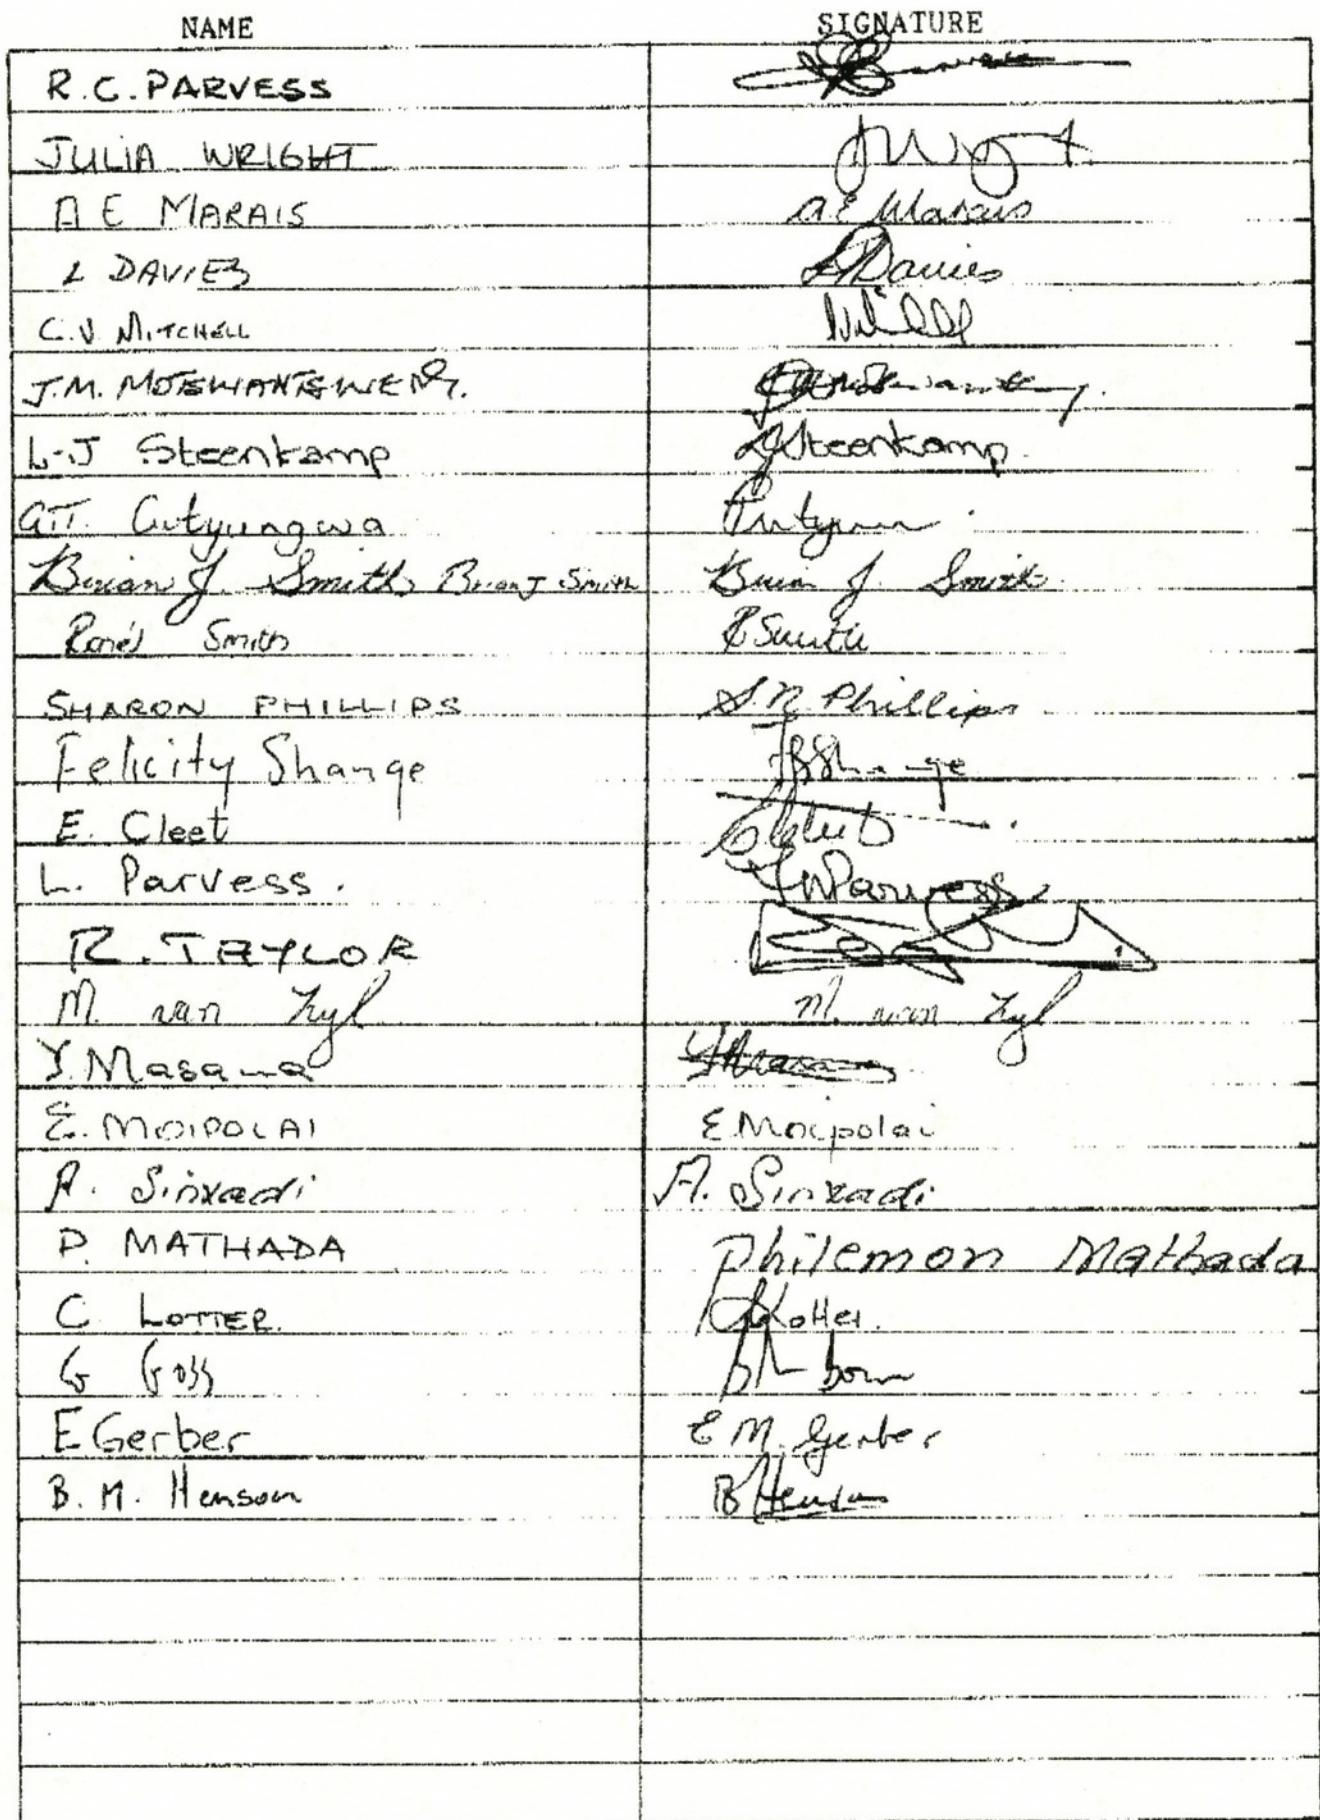 NAME SIGNATURE
R.C. PARVESS
JULIA WRIGHT
A E MARAIS A E Marais
L DAVIES L Davies
C.V. MITCHELL
J.M.
L-J Steenkamp LJSteenkamp.
Brian J. Smith Brian J Smith Brian J. Smith
Smith RSmith
SHARON PHILLIPS S.N. Phillips
Felicity Shange
E. Cleet
L. Parvess. Parvess
R. TAYLOR
M. van Zyl M. van Zyl
Y. Masana
E. MOIPOLAI E Moipolai
A. Sinxadi A. Sinxadi
P. MATHADA Philemon Mathada
C LOTTER. Lotter.
G Goss
E Gerber E M. Gerber
B. M. Henson B Henson